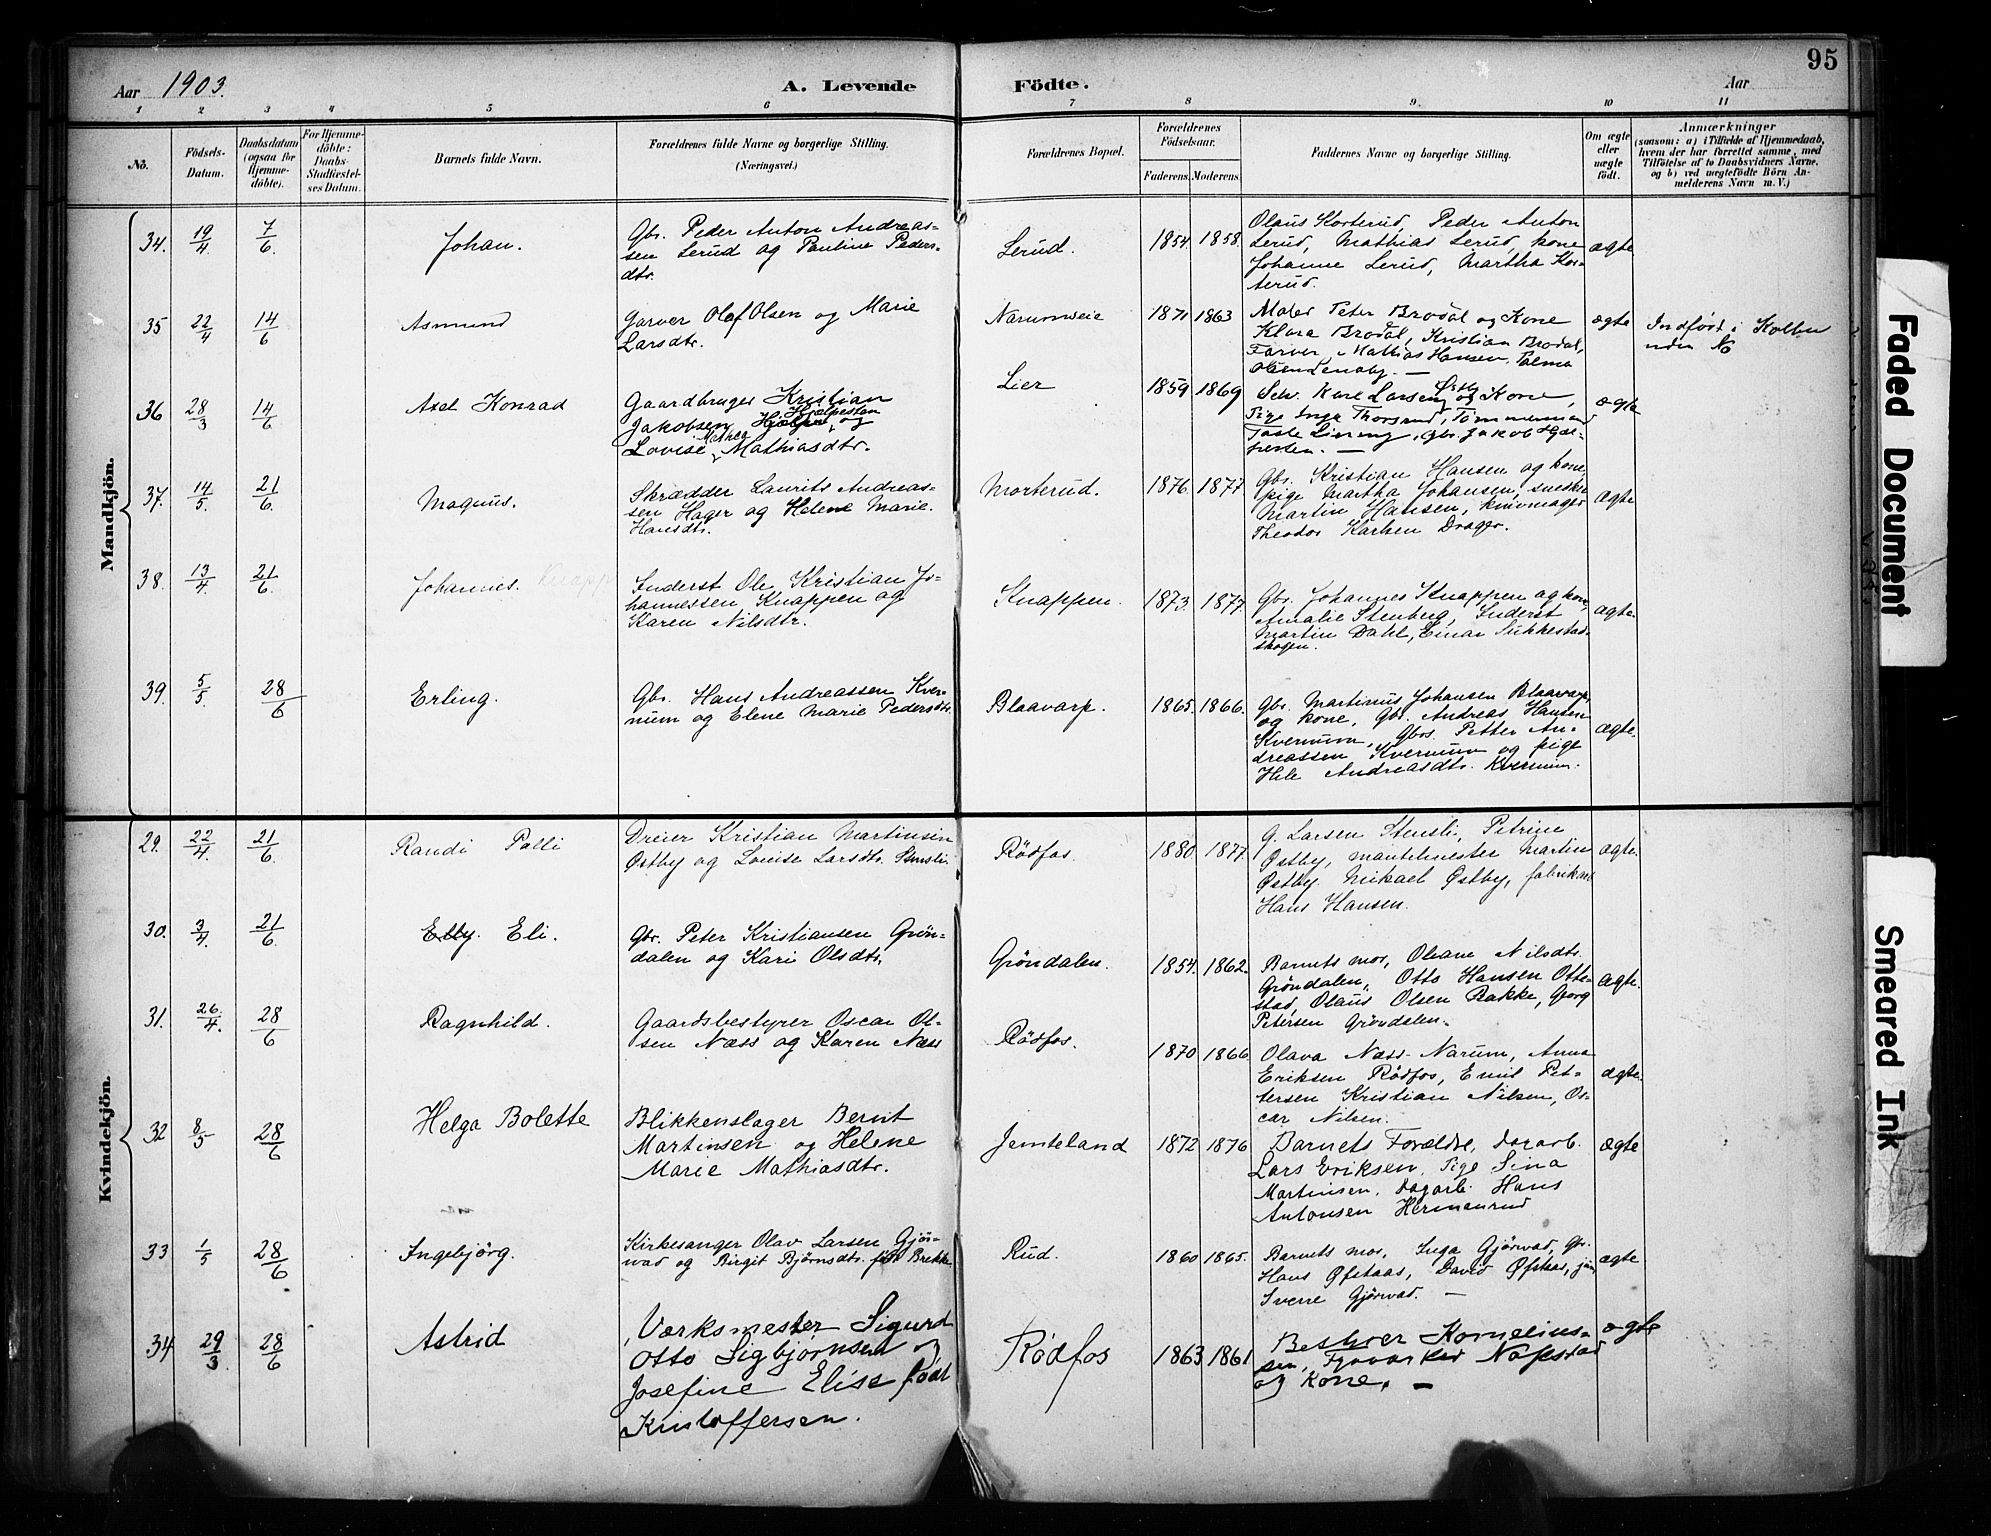 95
Aar 1903. A. Levende Födte. Aar
1 2 3 4 5 6 7 8 9. 10 11
No. Födsels-Datum. Daabsdatum (ogsaa for Hjemme-döbte). For Hjemme-döbte: Daabs-Stadfæstel-ses Datum. Barnets fulde Navn. Forældrenes fulde Navne og borgerlige Stilling. (Næringsvei.) Forældrenes Bopæl. Forældrenes Födselsaar. Faderens. Moderens. Faddernes Navne og borgerlige Stilling. Om ægte eller uægte födt. Anmærkninger (saasom: a) i Tilfælde af Hjemmedaab, hvem der har forrettet samme, med Tilföielse af to Daabsvidners Navne, og b) ved uægtefödte Börn An-melderens Navn m. V.)
Mandkjön.
34. 19/4 7/6. Johan. Gbr. Peder Anton Andreas-
sen Lerud og Pauline Peders-
dtr.
Lerud. 1854. 1858.
Olaus Korterud, Peder Anton
Lerud, Mathias Lerud, kone
Johanne Lerud, Martha Kor-
terud.
ægte
35 22/4 14/6 Asmund Garver Olaf Olsen og Marie
Larsdtr.
Narumseie 1871 1863
Maler Peter Brodal og Kone
Klara Brodal, Kristian Brodal,
Farver Mathias Hansen, Palma
ægte Indført i Kolbu
under No
36 28/3 14/6 Axel Konrad Gaardbruger Kristian
Jakobsen Hjelpesten og
Lovise Mathea Mathiasdtr.
Lier 1859 1869
Selv. Karl Larsen og Kone,
Pige Inga Thorsrud, Tømmermand
ægte
37. 14/5. 21/6. Magnus. Skrædder Laurits Andreas-
sen Hager og Helene Marie
Hansdtr.
Morterud. 1876. 1877
Gbr. Kristian Hansen og kone,
pige Martha Johansen, snedker
Martin Hansen, knivmager
Theodor Karlsen Drager.
ægte
38. 13/4. 21/6. Johannes. Knapp Inderst Ole Kristian Jo-
hannessen Knappen og
Karen Nilsdtr.
Knappen. 1873. 1877.
Gbr. Johannes Knappen og kone,
Amalie Stenberg, Inderst
Martin Dahl, Einar Sukkestad-
skogen.
ægte.
39. 5/5. 28/6 Erling. Gbr. Hans Andreassen Kver-
num og Elene Marie Pedersdtr.
Blaavarp. 1865. 1866.
Gbr. Martinus Johansen Blaavarp
og kone, Gbr. Andreas Hansen
Kvernum, Gbrs. Petter An-
dreassen Kvernum og pige
Hele Andreasdtr. Kvernum.
ægte.
Kvindekjön.
29. 22/4. 21/6. Randi Palli Dreier Kristian Martinsen
Østby og Louise Larsdtr. Stensli
Rödfos. 1880 1877.
G. Larsen Stensli, Petrine
Østby, Martin
Østby. Mikael Østby, fabrikarb
Hans Hansen.
ægte.
30. 3/4. 21/6. Elly. Eli. Gbr. Peter Kristiansen Grön-
dalen og Kari Olsdtr.
Gröndalen. 1854. 1862.
Barnets mor, Oleane Nilsdtr.
Gröndalen, Otto Hansen Otte-
stad, Olaus Olsen Rakke, Georg
Petersen Gröndalen.
ægte.
31. 26./4. 28/6 Ragnhild. Gaardsbestyrer Oscar Ol-
sen Næss og Karen Næss
Rödfos. 1870 1866.
Olava Næss-Narum, Anna
Eriksen Rödfos, Emil Pet-
tersen Kristian Nilsen, Os-
car Nilsen.
ægte.
32 8/5 28/6 Helga Bolette Blikkenslager Bernt
Martinsen og Helene
Marie Mathiasdtr.
Jemteland 1872 1876
Barnets Forældre, dagarb.
Lars Eriksen, Pige Sina
Martinsen, dagarb. Hans
Antonsen Hermanrud
ægte
33 1/5 28/6. Ingebjörg. Kirkesanger Olav Larsen Gjör-
vad og Birgit Bjørnsdtr. født Brekke
Rud. 1860 1865.
Barnets mor, Inga Gjörvad, Gbr.
Hans Øfstaas, David Øfstaas, jun,
Sverre Gjörvad. —
ægte
34 29/3 28/6 Astrid Værksmester Sigurd
Otto Sigbjørnsen og
Josefine Elise født
Kristoffersen.
Rödfos 1863 1861
Bestyrer Kornelius-
sen,
og Kone. —
ægte
Faded Document
Smeared Ink